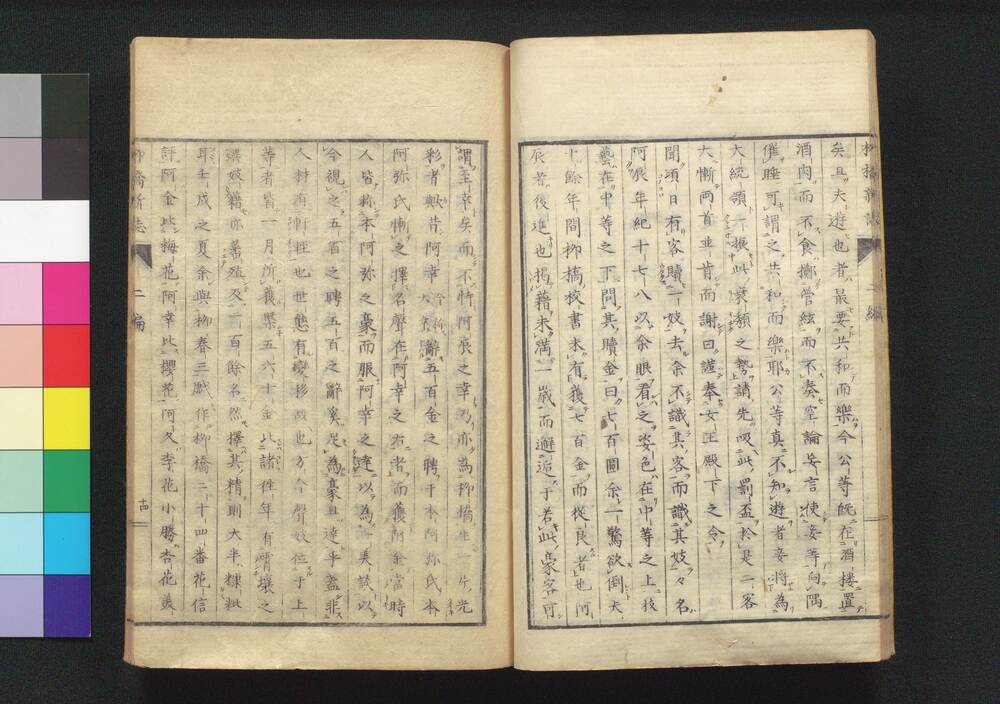 矣且夫遊也者最要共和而樂今公等既在酒樓置
酒肉而不食擲管絃而不奏空論妄言使妾等向隅
催睡可謂之共和而樂耶公等真不知遊者妾將為
大統領一振此衰頽之勢請先吸此罰盃於是二客
大慚両首並肯而謝曰謹奉女王殿下之令
聞頃日有客贖一妓去余不識其客而識其妓々名
阿辰年紀十七八以余眼看之姿色在中等之上技
藝在中等之下問其贖金曰七百圓余一驚欲倒大
十餘年間柳橋校書未有獲七百金而從良者也阿
辰者後進也揭籍未満一歳而邂逅于若此豪客可
謂至幸矣而不特阿辰之幸乃亦為柳橋生一片光
彩者歟昔阿幸辭五百金之聘于本阿弥氏本
阿弥氏慚之擇名聲在阿幸之右者而獲阿金當時
人皆称本阿弥之豪而服阿幸之達以為美談以
今視之五百之聘五百之辭奚足為豪且達乎蓋非
人材有軒輊也世態有變移故也方今聲妓位于上
等者皆一月所獲槩五六十金比諸往年有霄壤之
妓籍亦蕃殖及二百餘名然擇其精則大半糠粃
耳壬戌之夏余與柳春三戯作柳橋二十四番花信
評阿金比梅花阿幸比櫻花阿久李花小勝杏花美
柳橋新誌
二編
十四